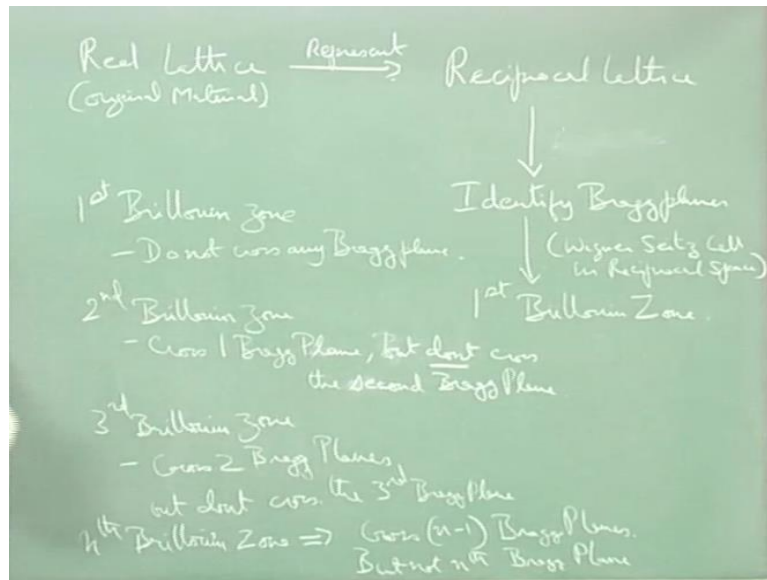 Real Lattice Represent Reciprocal Lattice
(original Material)
Identify Bragg planes
(Wigner Seitz Cell
in Reciprocal Space)
1st Brillouin Zone.
1st Brillouin zone
- Do not cross any Bragg plane.
2nd Brillouin zone
- Cross 1 Bragg Plane, but dont cross
the second Bragg Plane
3rd Brillouin zone
- Cross 2 Bragg Planes,
but dont cross the 3rd Bragg Plane
nth Brillouin Zone ⇒ Cross (n-1) Bragg Planes.
But not nth Bragg Plane